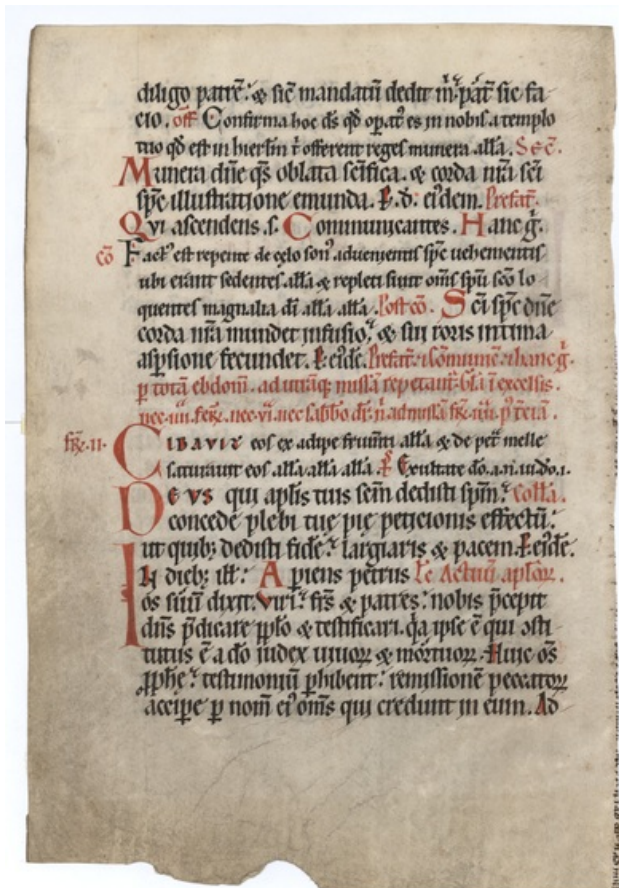 diligo patrē. & sič mandatū dedit m̄. pat̄. sic fa
cio. off̄ Confirma hoc ds̄ qd̄ opat̄ es in nobis a templo
tuo qd̄ est in hierl̄m t̄ offerent reges munera all̄a. Sēc̄.
Munera dn̄e qs̄ oblata sc̄ifica. & corda nr̄a sc̄i
sp̄c illustratione emunda. P. d. eidem. Prefat̄.
Qvi ascendens. s. Communicantes. Hanc g̊.
cō Fact̄ est repente de celo son᷒ aduenientis sp̄c uehementis
ubi erant sedentes all̄a & repleti sunt om̄s sp̄u sc̄o lo
quentes magnalia dī all̄a all̄a. Post cō. Sc̄i sp̄c dn̄e
corda nr̄a mundet infusio. & sui roris intima
asp̄sione fecundet. P. eidē. Prefat̄. ⁊ comune. ⁊ hanc g̊.
p totā ebdom̄. ad utāq; missā repetant̄. bl̄a ī excelsis.
nec. iiii. fer̄. nec. vi. nec sabb̄o dr̄. n̄ ad missā
fr̄. ii. CIBAVIT eos ex adipe frum̄ti all̄a & de pet̄ melle
saturauit eos all̄a all̄a all̄a. P̄s Exultate dō. a. n. iu. dō. i.
DEVS qui apl̄is tuis sc̄m dedisti sp̄m. Coll̄a.
concede plebi tue pie peticionis effectū.
ut quib; dedisti fidē. largiaris & pacem. P. eidē.
IN dieb; ill̄. Apiens petrus Lc̄ Actuū apl̄oꝝ.
os suū dixit. Viri. fr̄s & patres. nobis p̄cepit
dn̄s p̄dicare pp̄lo & testificari. q̄a ipse ē qui osti
tutus ē a dō iudex uiuoꝝ & mortuoꝝ. Huic om̄s
ꝓphe. testimoniū ꝑhibent. remissionē peccatoꝝ
accipe p nom̄ ei᷒ om̄s qui credunt in eum. Ad